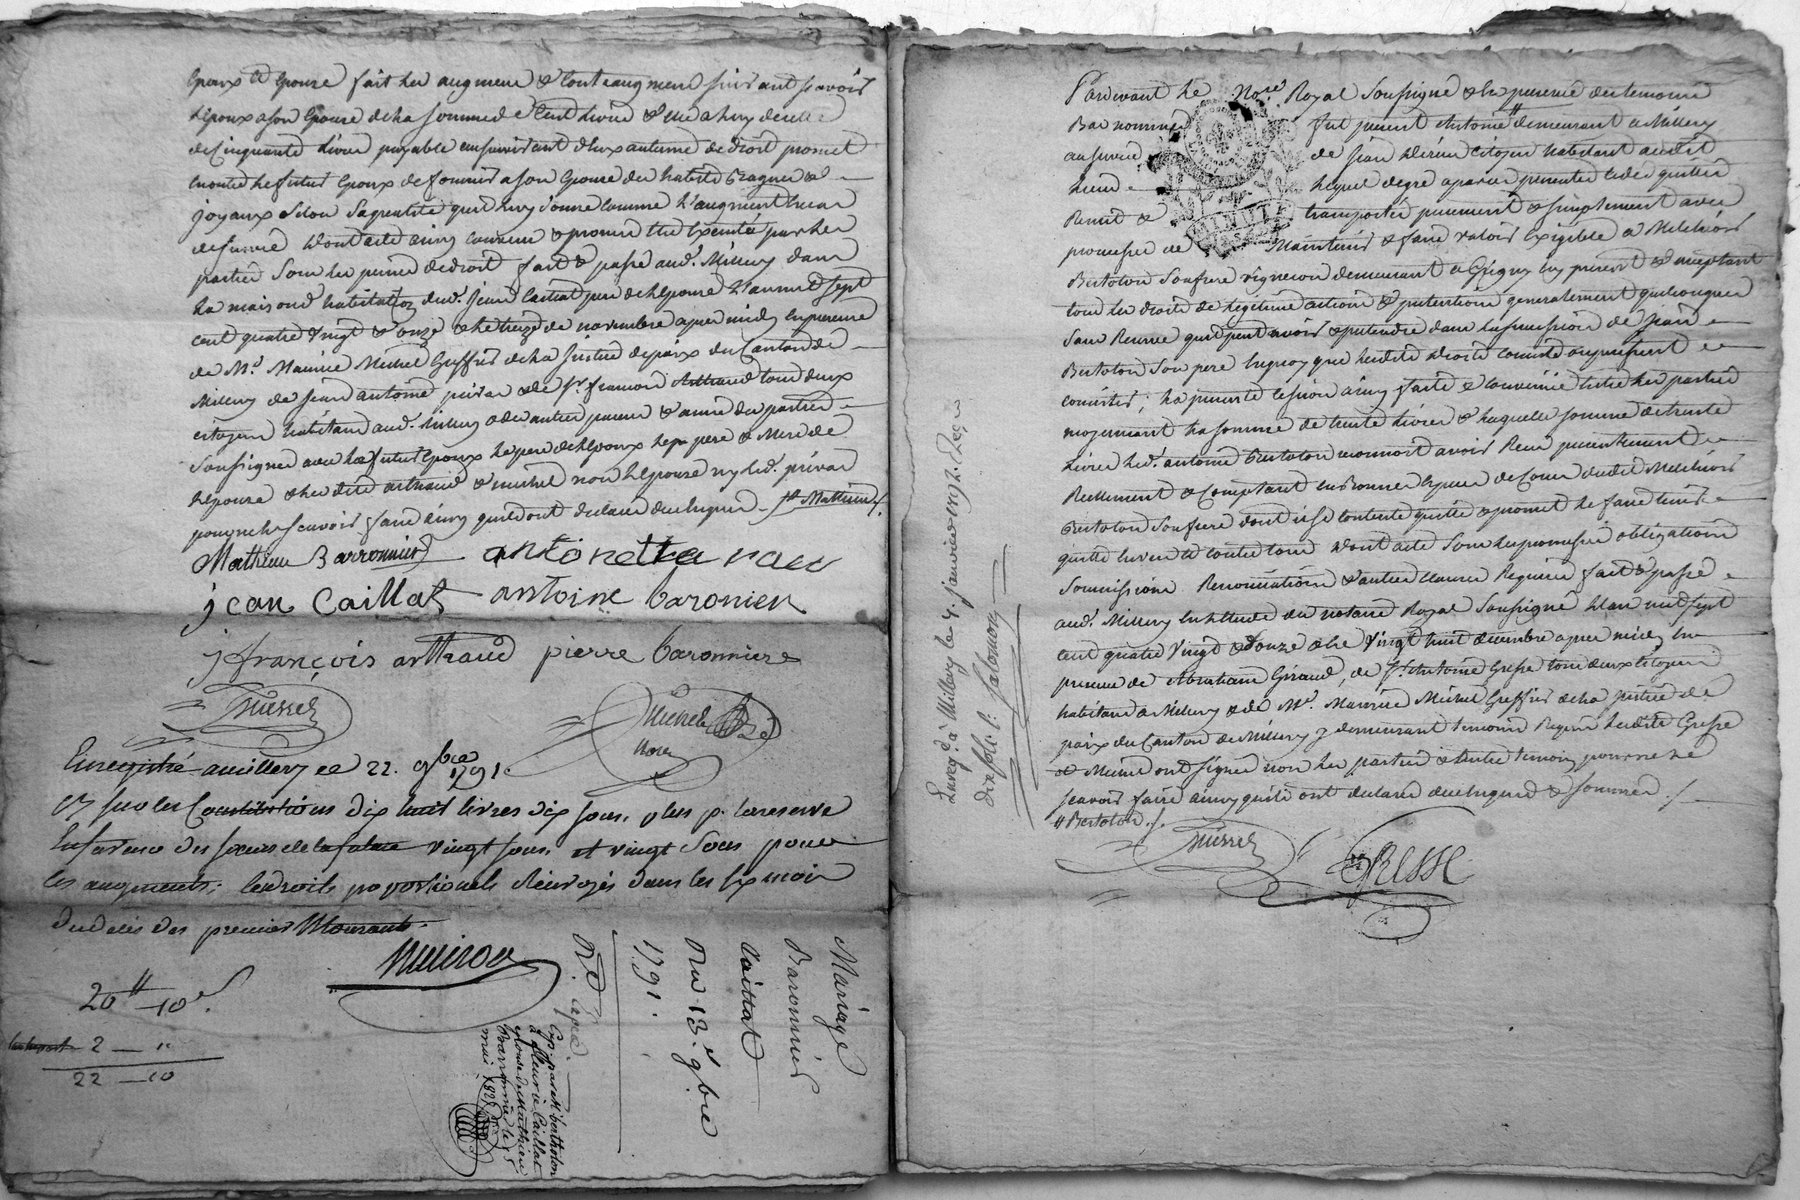 Epoux Et Epouse fait les augment & Contreaugment suivant scavoir
L'époux a son Epouse de la somme de Cent livres & elle a luy de celle
de Cinquante livres payable au survivant d'eux au terme de droit promet
en outre le futur Epoux de fournir a son Epouse des habits bagues &
joyaux Selon Sa qualité qu'il luy donne comme l'augment en cas
de survie dont acte ainsy convenu & promis etre Executé par les
parties Sous les peines de droit fait & passé aud. Millery dans
la maison d'habitation dud. Jean Caillat pere de l'Epouse L'an mil sept
cent quatre vingt & onze & le treize de novembre apres midy en presence
de Mr. Maurice Michel Greffier de la Justice de paix du Canton de
Millery de Jean Antoine privat & de Sr. francois Arthaud tous deux
citoyens habitans aud. Millery & des autres parens & amis des parties
Soussignés avec le futur Epoux le pere de l'Epoux les pere & Mere de
l'épouse & les dits arthaud & michel non l'épouse ny led. privat
pour ne le scavoir faire ainsy qu'ils ont declaré de ce requis J. Mathieu /.
Mathieu Barronnier antonetta
jean Caillat antoine baronier
j françois arthaud pierre baronniere
Michel
Enregistré a millery ce 22. 9bre 1791.
sur les Constitutions dix huit livres dix sous, plus p. la reserve
En faveur des sœurs de la future vingt sous, et vingt Sous pour
les augments; les droits proportionels réservés dans les six mois
du décès des premier Mourant.
20 ll 10 s.
2 — "
22 — 10
Mariage
Baronnier
Caillat
Du 13. 9bre
1791.
Exp. par Mr bertholon
a fleurie Caillat
epouse de Mathieu
Baronnier le 5
mai 1827
Pardevant le Nore. Royal Soussigné & en presence des temoins
Bas nommés fut present Antoine demeurant a Millery
au service de Jean citoyen habitant audit
lieu lequel degré a par ces presentes cedé quitté
Remit & transporté purement & simplement avec
promesse de Maintenir & faire valoir Exigible a Melchior
Bertolon Son frere vigneron demeurant a Grigny icy present & acceptant
tous les droits de légitime actions & pretentions generalement quelconques
Sans Reserve qu'il peut avoir & pretendre dans la succession de Jean
Bertolon Son pere en quoy que lesdits droits consistent ou puissent
consister; la presente cession ainsy faite & convenüe entre les parties
moyennant la somme de trente livres & laquelle somme de trente
livres led. antoine Bertolon reconnoit avoir Recu presentement
Réellement & Comptant en Bonnes Especes de Cours dudit Melchior
Bertolon Son frere dont il se contente quitte & promet le faire tenir
quitte envers et contre tous dont acte Sous les promesses obligations
Soumissions Renonciations & autres clauses Requises fait & passé
aud. Millery en l'étude du notaire Royal Soussigné L'an mil sept
cent quatre vingt & onze & le vingt huit decembre apres midy en
presence de Abraham Giraud, de Sr. Antoine Gresse tous deux citoyens
habitans a Millery & de Mr. Maurice Michel Greffier de la justice de
paix du Canton de Millery y demeurant temoins Requis lesdits Gresse
& Michel ont signés non les parties & l'autre temoin pour ne le
scavoir faire ainsy qu'ils ont declaré de ce requis & sommés /.
" Bertolon /.
Michel
GRESSE
Enreg. à Millery le 4. janvier 1792. Reçu
dix sols.